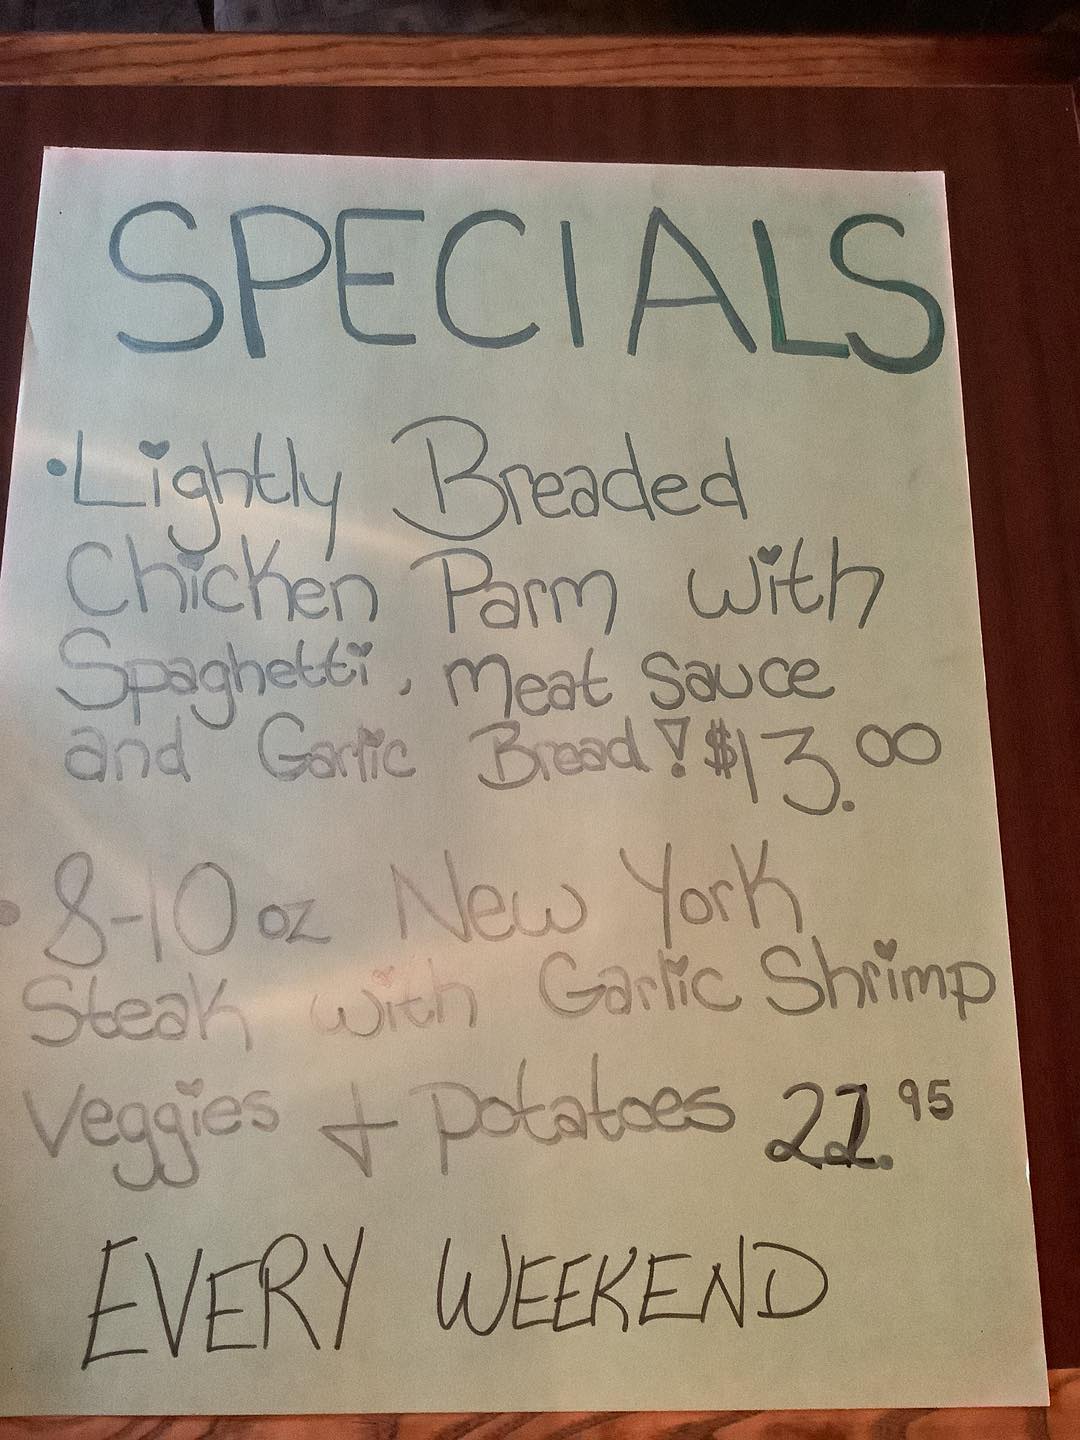 SPECIALS
• Lightly Breaded
Chicken Parm with
Spaghetti, meat sauce
and Garlic Bread! $13.00
• 8-10 oz New York
Steak with Garlic Shrimp
Veggies + potatoes 22.95
EVERY WEEKEND